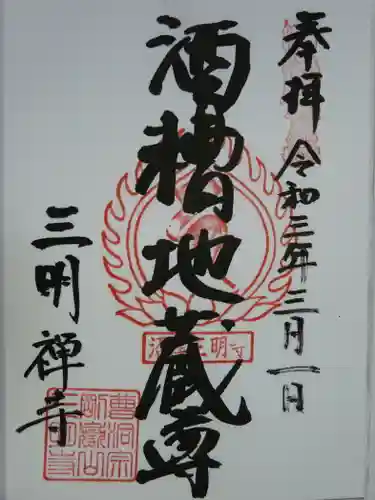 奉拝 令和三年三月一日
酒槽地蔵尊
三明禅寺
三明寺
曹洞宗